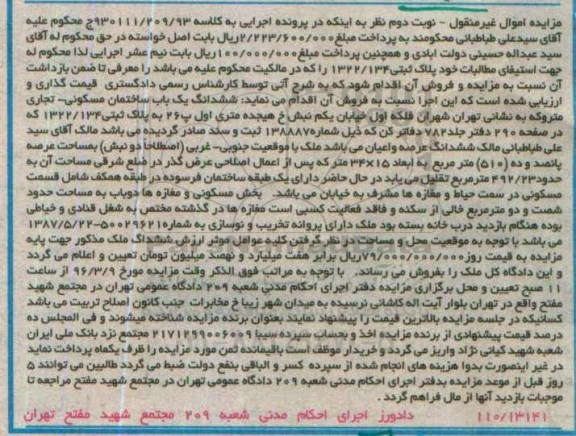 مزایده اموال غیرمنقول - نوبت دوم نظر به اینکه در پرونده اجرایی به کلاسه ۹۳۰۱۱۱/۲۰۹/۹۳ج محکوم علیه
آقای سیدعلی طباطبائی محکومند به پرداخت مبلغ۲/۲۲۳/۶۰۰/۰۰۰ریال بابت اصل خواسته در حق محکوم له آقای
سید عبداله حسینی دولت ابادی و همچنین پرداخت مبلغ۱۰۰/۰۰۰/۰۰۰ریال بابت نیم عشر اجرایی لذا محکوم له
جهت استیفای مطالبات خود پلاک ثبتی۱۳۲۲/۱۳۴ را که در مالکیت محکوم علیه می باشد را معرفی تا ضمن بازداشت
آن نسبت به مزایده و فروش آن اقدام شود که به شرح آتی توسط کارشناس رسمی دادگستری قیمت گذاری و
ارزیابی شده است که این اجرا نسبت به فروش آن اقدام می نماید: ششدانگ یک باب ساختمان مسکونی- تجاری
متروکه به نشانی تهران شهران فلکه اول خیابان یکم نبش خ هیجده متری اول پ۲۶ به پلاک ثبتی۱۳۲۲/۱۳۴ که
در صفحه ۲۹۰ دفتر جلد۷۸۲ دفاتر کن که ذیل شماره۱۳۸۸۸۷ ثبت و سند صادر گردیده می باشد مالک آقای سید
علی طباطبائی مالک ششدانگ عرصه واعیان می باشد ملک با موقعیت جنوبی- غربی (اصطلاحاً دو نبش) بمساحت عرصه
پانصد و ده (۵۱۰) متر مربع به ابعاد ۱۵×۳۴ متر که پس از اعمال اصلاحی عرض گذر در ضلع شرقی مساحت آن به
حدود۴۹۲/۲۳ مترمربع تقلیل می یابد در حال حاضر دارای یک طبقه ساختمان فرسوده در طبقه همکف شامل قسمت
مسکونی در سمت حیاط و مغازه ها مشرف به خیابان می باشد. بخش مسکونی و مغازه ها دوباب به مساحت حدود
شصت و دو مترمربع خالی از سکنه و فاقد فعالیت کسبی است مغازه ها در گذشته مختص به شغل قنادی و خیاطی
بوده هنگام بازدید درب خانه بسته بود ملک دارای پروانه تخریب و نوسازی به شماره۵۰۰۲۹۶۲۱-۱۳۸۷/۵/۲۲
می باشد با توجه به موقعیت محل و مساحت در نظر گرفتن کلیه عوامل موثر ارزش ششدانگ ملک مذکور جهت پایه
مزایده به قیمت روز۷۹/۰۰۰/۰۰۰/۰۰۰ریال برابر هفت میلیارد و نهصد میلیون تومان تعیین و اعلام می گردد
و این دادگاه کل ملک را بفروش می رساند. با توجه به مراتب فوق الذکر وقت مزایده مورخ ۹۶/۳/۹ از ساعت
۱۱ صبح تعیین و محل برگزاری مزایده دفتر اجرای احکام مدنی شعبه ۲۰۹ دادگاه عمومی تهران در مجتمع شهید
مفتح واقع در تهران بلوار آیت اله کاشانی نرسیده به میدان شهر زیبا خ مخابرات جنب کانون اصلاح تربیت می باشد
کسانیکه در جلسه مزایده بالاترین قیمت را پیشنهاد نمایند بعنوان برنده مزایده شناخته میشوند و فی المجلس ده
درصد قیمت پیشنهادی از برنده مزایده اخذ و بحساب سپرده سیبا ۲۱۷۱۲۹۹۰۰۶۰۰۹ مجتمع نزد بانک ملی ایران
شعبه شهید کیانی نژاد واریز می گردد و خریدار موظف است باقیمانده ثمن مورد مزایده را ظرف یکماه پرداخت نماید
در غیر اینصورت بدوا هزینه های انجام شده از سپرده کسر و الباقی بنفع دولت ضبط می گردد طالبین می توانند ۵
روز قبل از موعد مزایده بدفتر اجرای احکام مدنی شعبه ۲۰۹ دادگاه عمومی تهران در مجتمع شهید مفتح مراجعه تا
موجبات بازدید آنها از مال فراهم گردد.
۱۱۰/۱۳۱۴۱ دادورز اجرای احکام مدنی شعبه ۲۰۹ مجتمع شهید مفتح تهران